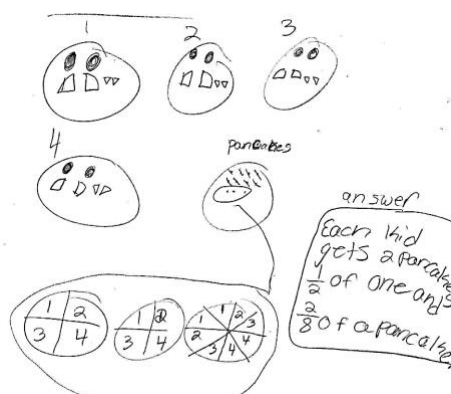 1 2 3
4
pancakes
answer
Each kid
gets 2 pancakes
1/2 of one and
2/8 of a pancake
1 2
3 4
1 2
3 4
1 1 2 3
2 3 4 4